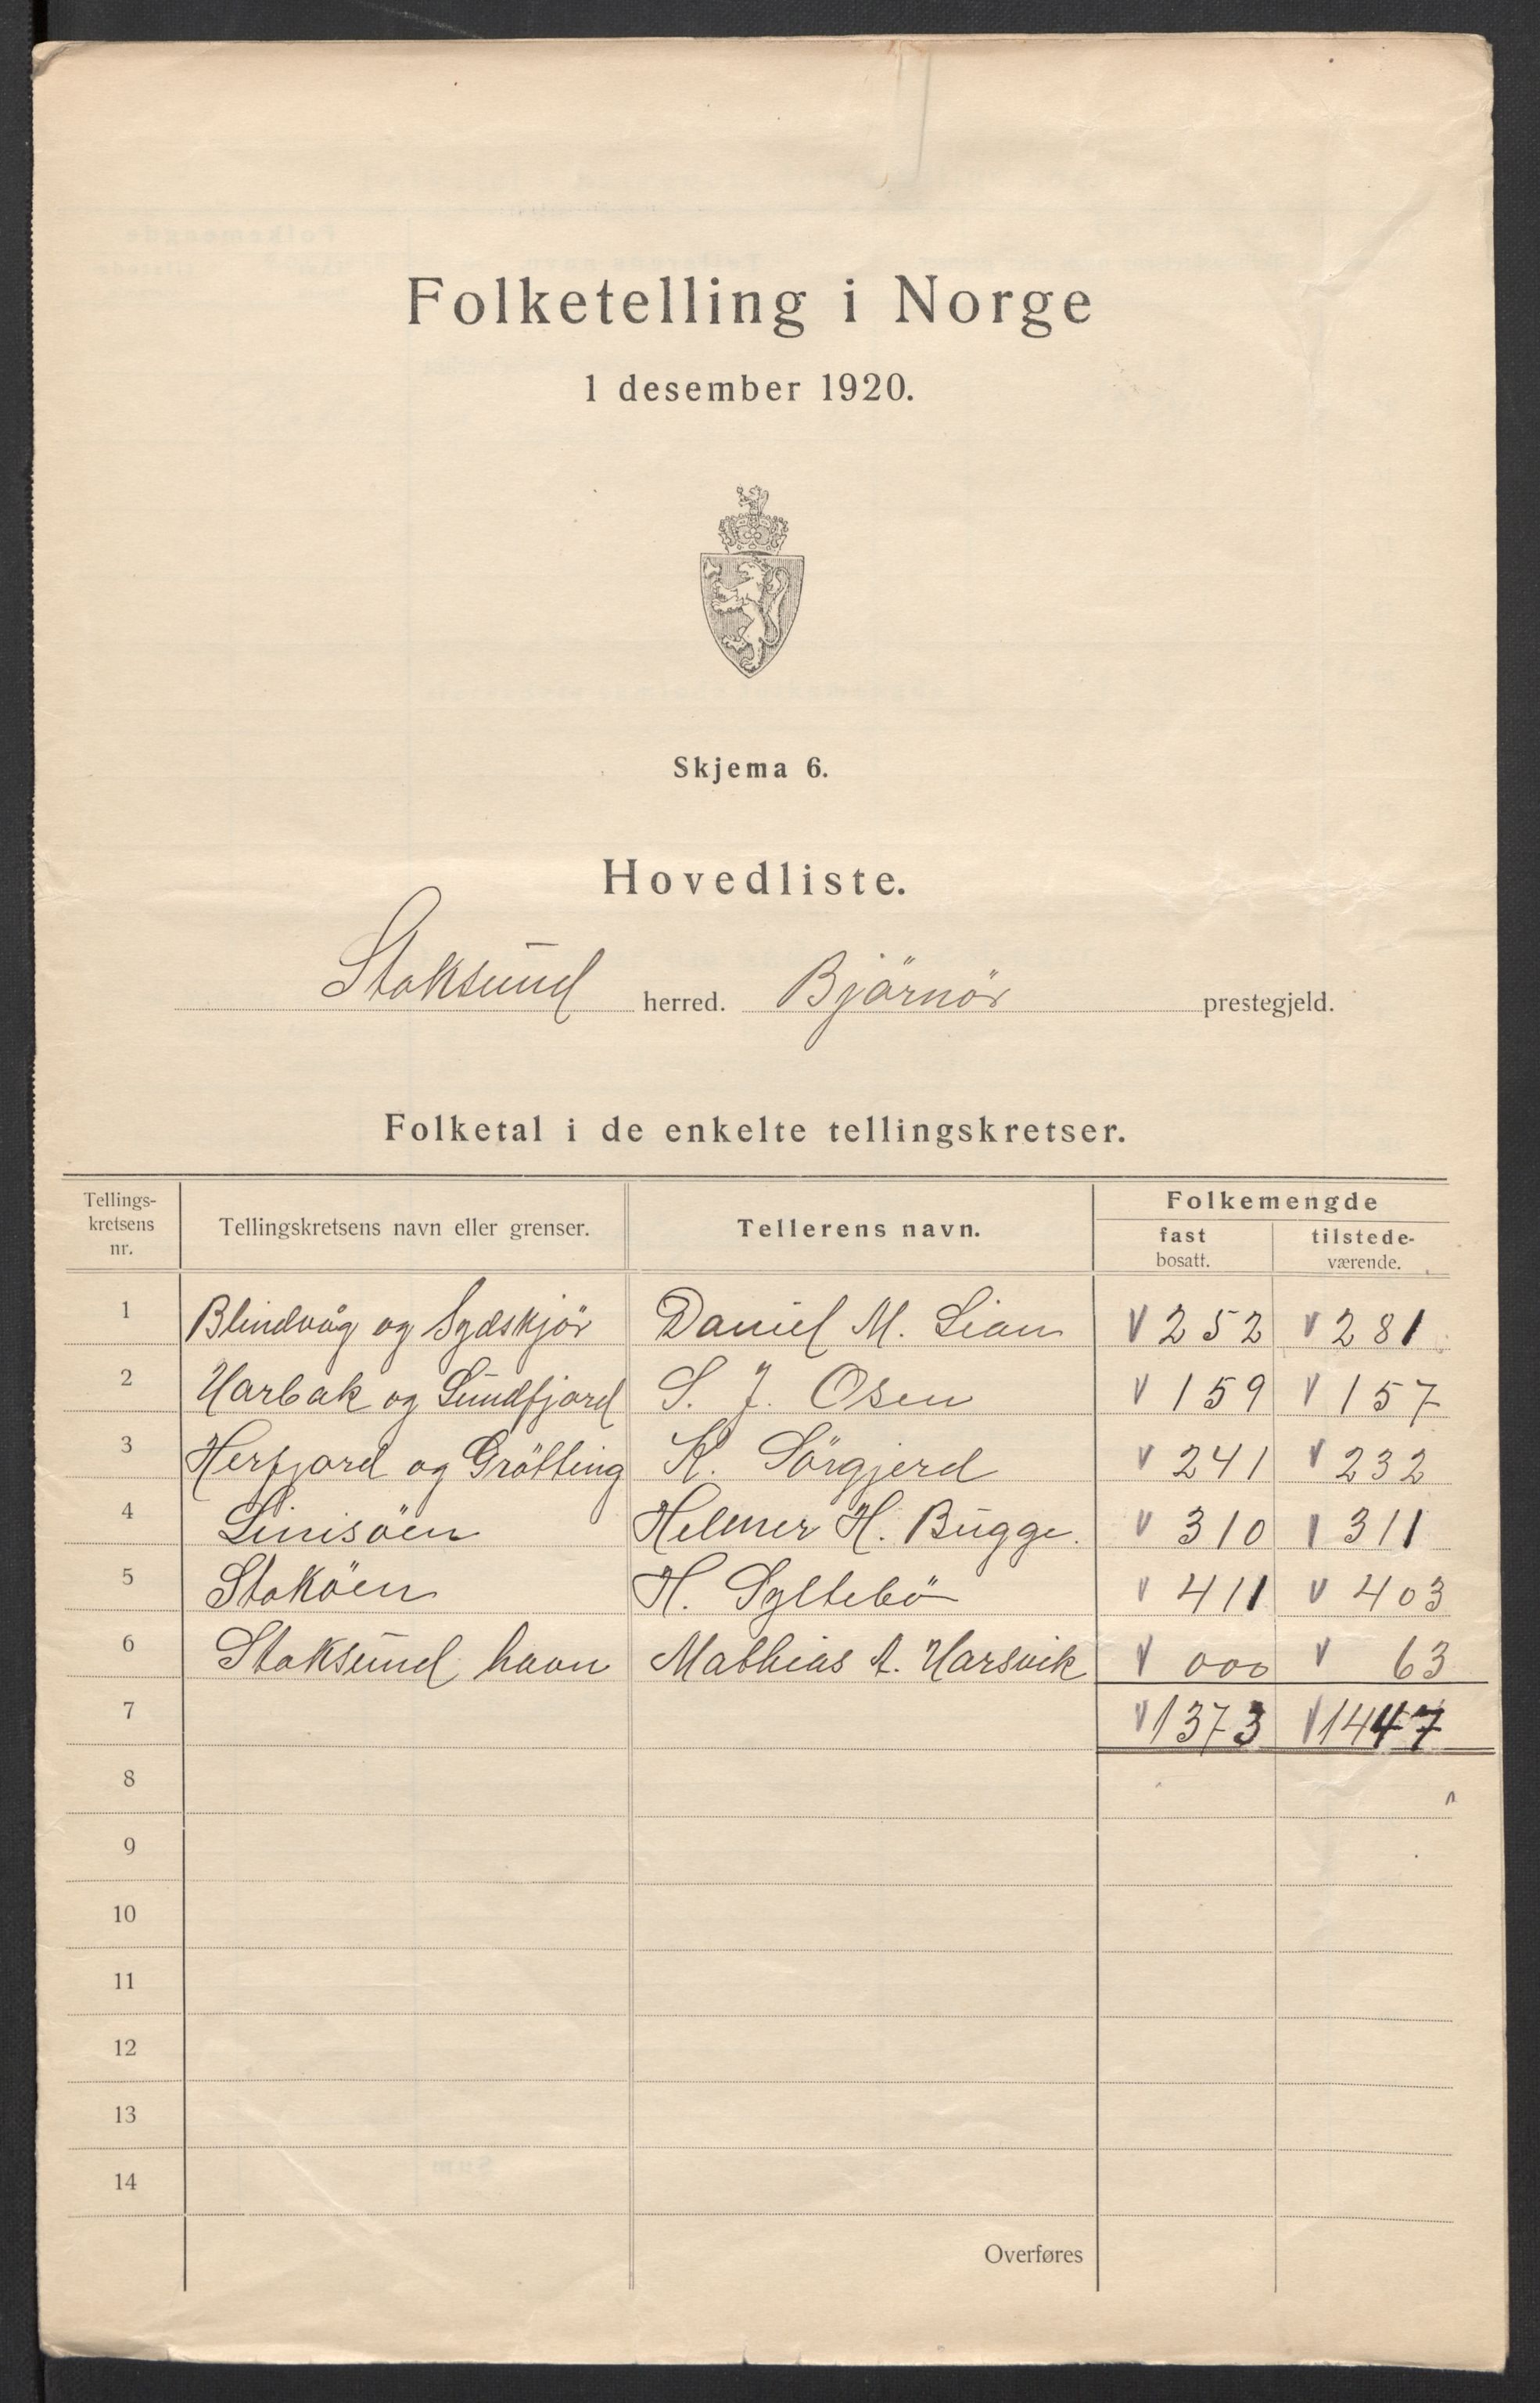 Folketelling i Norge
1 desember 1920.
Skjema 6.
Hovedliste.
Stoksund herred. Bjørnør prestegjeld.
Folketal i de enkelte tellingskretser.
Tellings-kretsens nr. Tellingskretsens navn eller grenser. Tellerens navn. Folkemengde fast bosatt. tilstede-værende.
1 Blindvåg og Sydskjør Daniel M. Lian 252 281
2 Harbak og Sundfjord S. J. Osen 159 157
3 Herfjord og Grøtting K. Sørgjerd 241 232
4 Linisøen Helmer H. Bugge. 310 311
5 Stokøen H. Syltebø 411 403
6 Stoksund havn Mathias A. Harsvik 000 63
7 1373 1447
8
9
10
11
12
13
14
Overføres